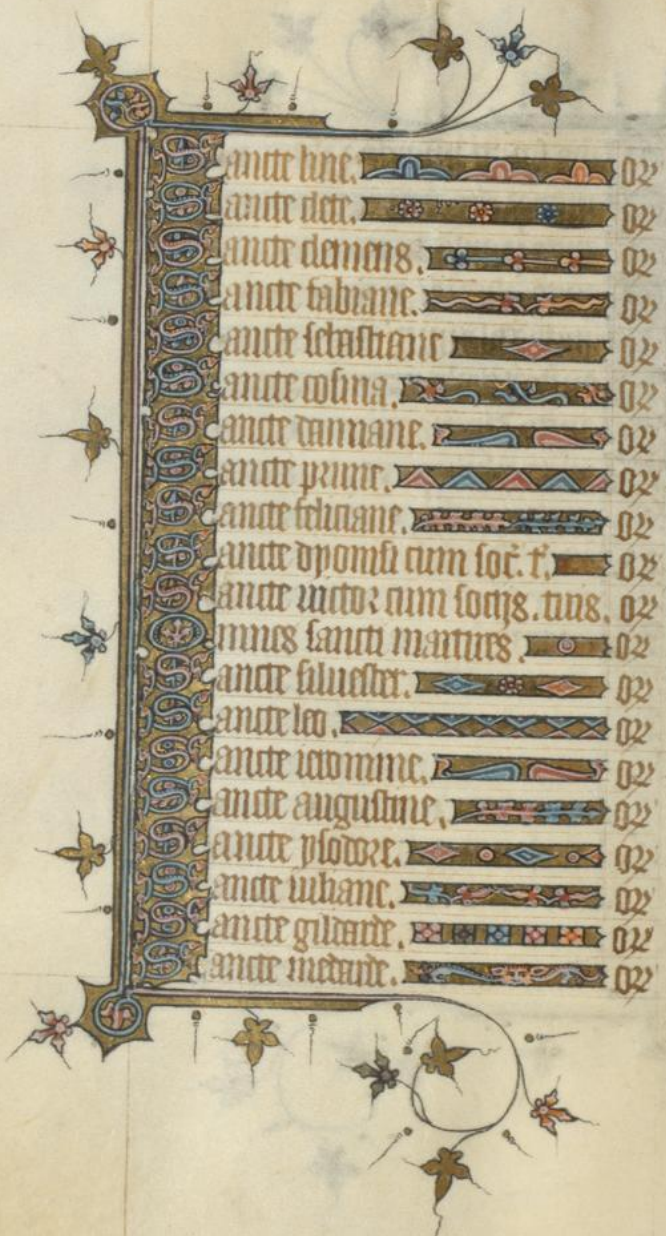 Sancte line. or
Sancte clete. or
Sancte clemens. or
Sancte fabiane. or
Sancte sebastiane or
Sancte cosma. or
Sancte damiane. or
Sancte prime. or
Sancte feliciane. or
Sancte dyonisi cum soc̄. t̄. or
Sancte victor cum socijs. tuis. or
Omnes sancti martires. or
Sancte siluester. or
Sancte leo. or
Sancte ieronime. or
Sancte augustine. or
Sancte ysodore. or
Sancte iuliane. or
Sancte gildarde. or
Sancte medarde. or